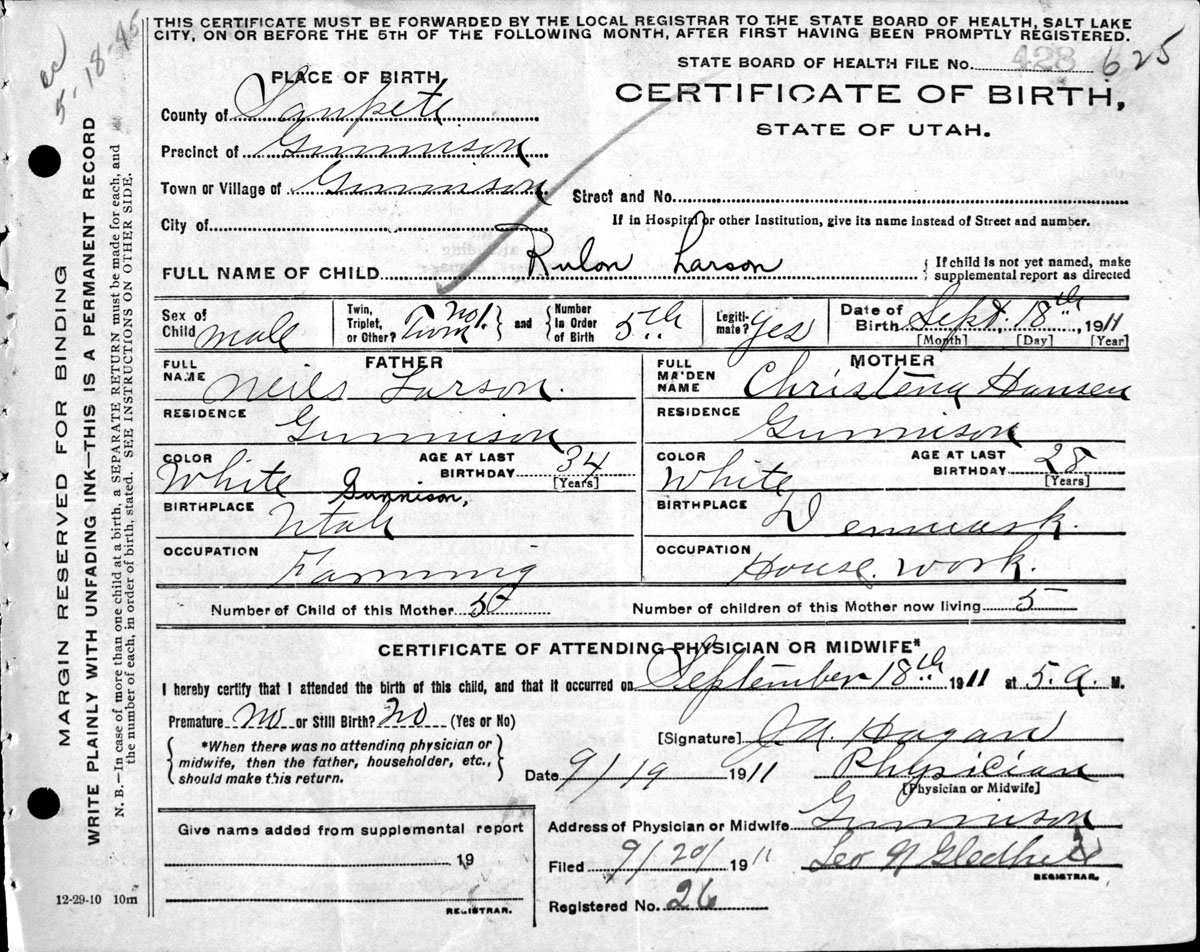 THIS CERTIFICATE MUST BE FORWARDED BY THE LOCAL REGISTRAR TO THE STATE BOARD OF HEALTH, SALT LAKE
CITY, ON OR BEFORE THE 5TH OF THE FOLLOWING MONTH, AFTER FIRST HAVING BEEN PROMPTLY REGISTERED.
5-18-45
MARGIN RESERVED FOR BINDING
WRITE PLAINLY WITH UNFADING INK—THIS IS A PERMANENT RECORD
N. B.—In case of more than one child at a birth, a SEPARATE RETURN must be made for each, and
the number of each, in order of birth, stated. SEE INSTRUCTIONS ON OTHER SIDE.
STATE BOARD OF HEALTH FILE No. 428 625
CERTIFICATE OF BIRTH,
STATE OF UTAH.
PLACE OF BIRTH
County of Sanpete
Precinct of Gunnison
Town or Village of Gunnison
Street and No.
City of
If in Hospital or other Institution, give its name instead of Street and number.
FULL NAME OF CHILD Rulon Larson { If child is not yet named, make
supplemental report as directed
Sex of Child male
Twin, Triplet, or Other? Twin no 1. and { Number In Order of Birth 5th
Legitimate? Yes
Date of Birth Sept. 18th, 1911
[Month] [Day] [Year]
FATHER
FULL NAME Neils Larson.
RESIDENCE Gunnison
COLOR White AGE AT LAST BIRTHDAY 34 [Years]
BIRTHPLACE Gunnison, Utah
OCCUPATION Farming
MOTHER
FULL MAIDEN NAME Christena Hansen
RESIDENCE Gunnison
COLOR White AGE AT LAST BIRTHDAY 28 [Years]
BIRTHPLACE Denmark.
OCCUPATION House work.
Number of Child of this Mother 5 Number of children of this Mother now living 5
CERTIFICATE OF ATTENDING PHYSICIAN OR MIDWIFE*
I hereby certify that I attended the birth of this child, and that it occurred on September 18th 1911 at 5. a. M.
Premature no or Still Birth? no (Yes or No)
*When there was no attending physician or
midwife, then the father, householder, etc.,
should make this return.
[Signature] J.A. Hagan
Date 9/19 1911 Physician
[Physician or Midwife]
Give name added from supplemental report
19
REGISTRAR.
Address of Physician or Midwife Gunnison
Filed 9/20/ 1911 Leo N Gledhill
REGISTRAR.
Registered No. 26
12-29-10 10m